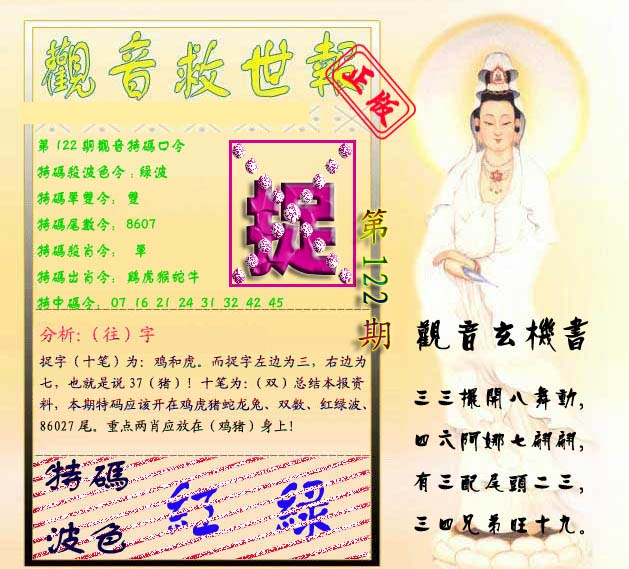 觀音救世報
正版
第122期觀音特碼口令
特碼殺波色令：綠波
特碼單雙令： 雙
特碼尾數令： 8607
特碼殺肖令： 單
特碼出肖令： 鷄虎猴蛇牛
特中碼令： 07 16 21 24 31 32 42 45
捉
第122期
分析:（往）字
捉字（十笔）为：鸡和虎。而捉字左边为三，右边为
七，也就是说 37（猪）！十笔为：（双）总结本报资
料，本期特码应该开在鸡虎猪蛇龙兔、双数、红绿波、
86027 尾。重点两肖应放在（鸡猪）身上！
特碼
波色
紅 綠
觀音玄機書
三三擺開八舞動，
四六阿娜七翩翩，
有三配尾頭二三，
三四兄弟旺十九。